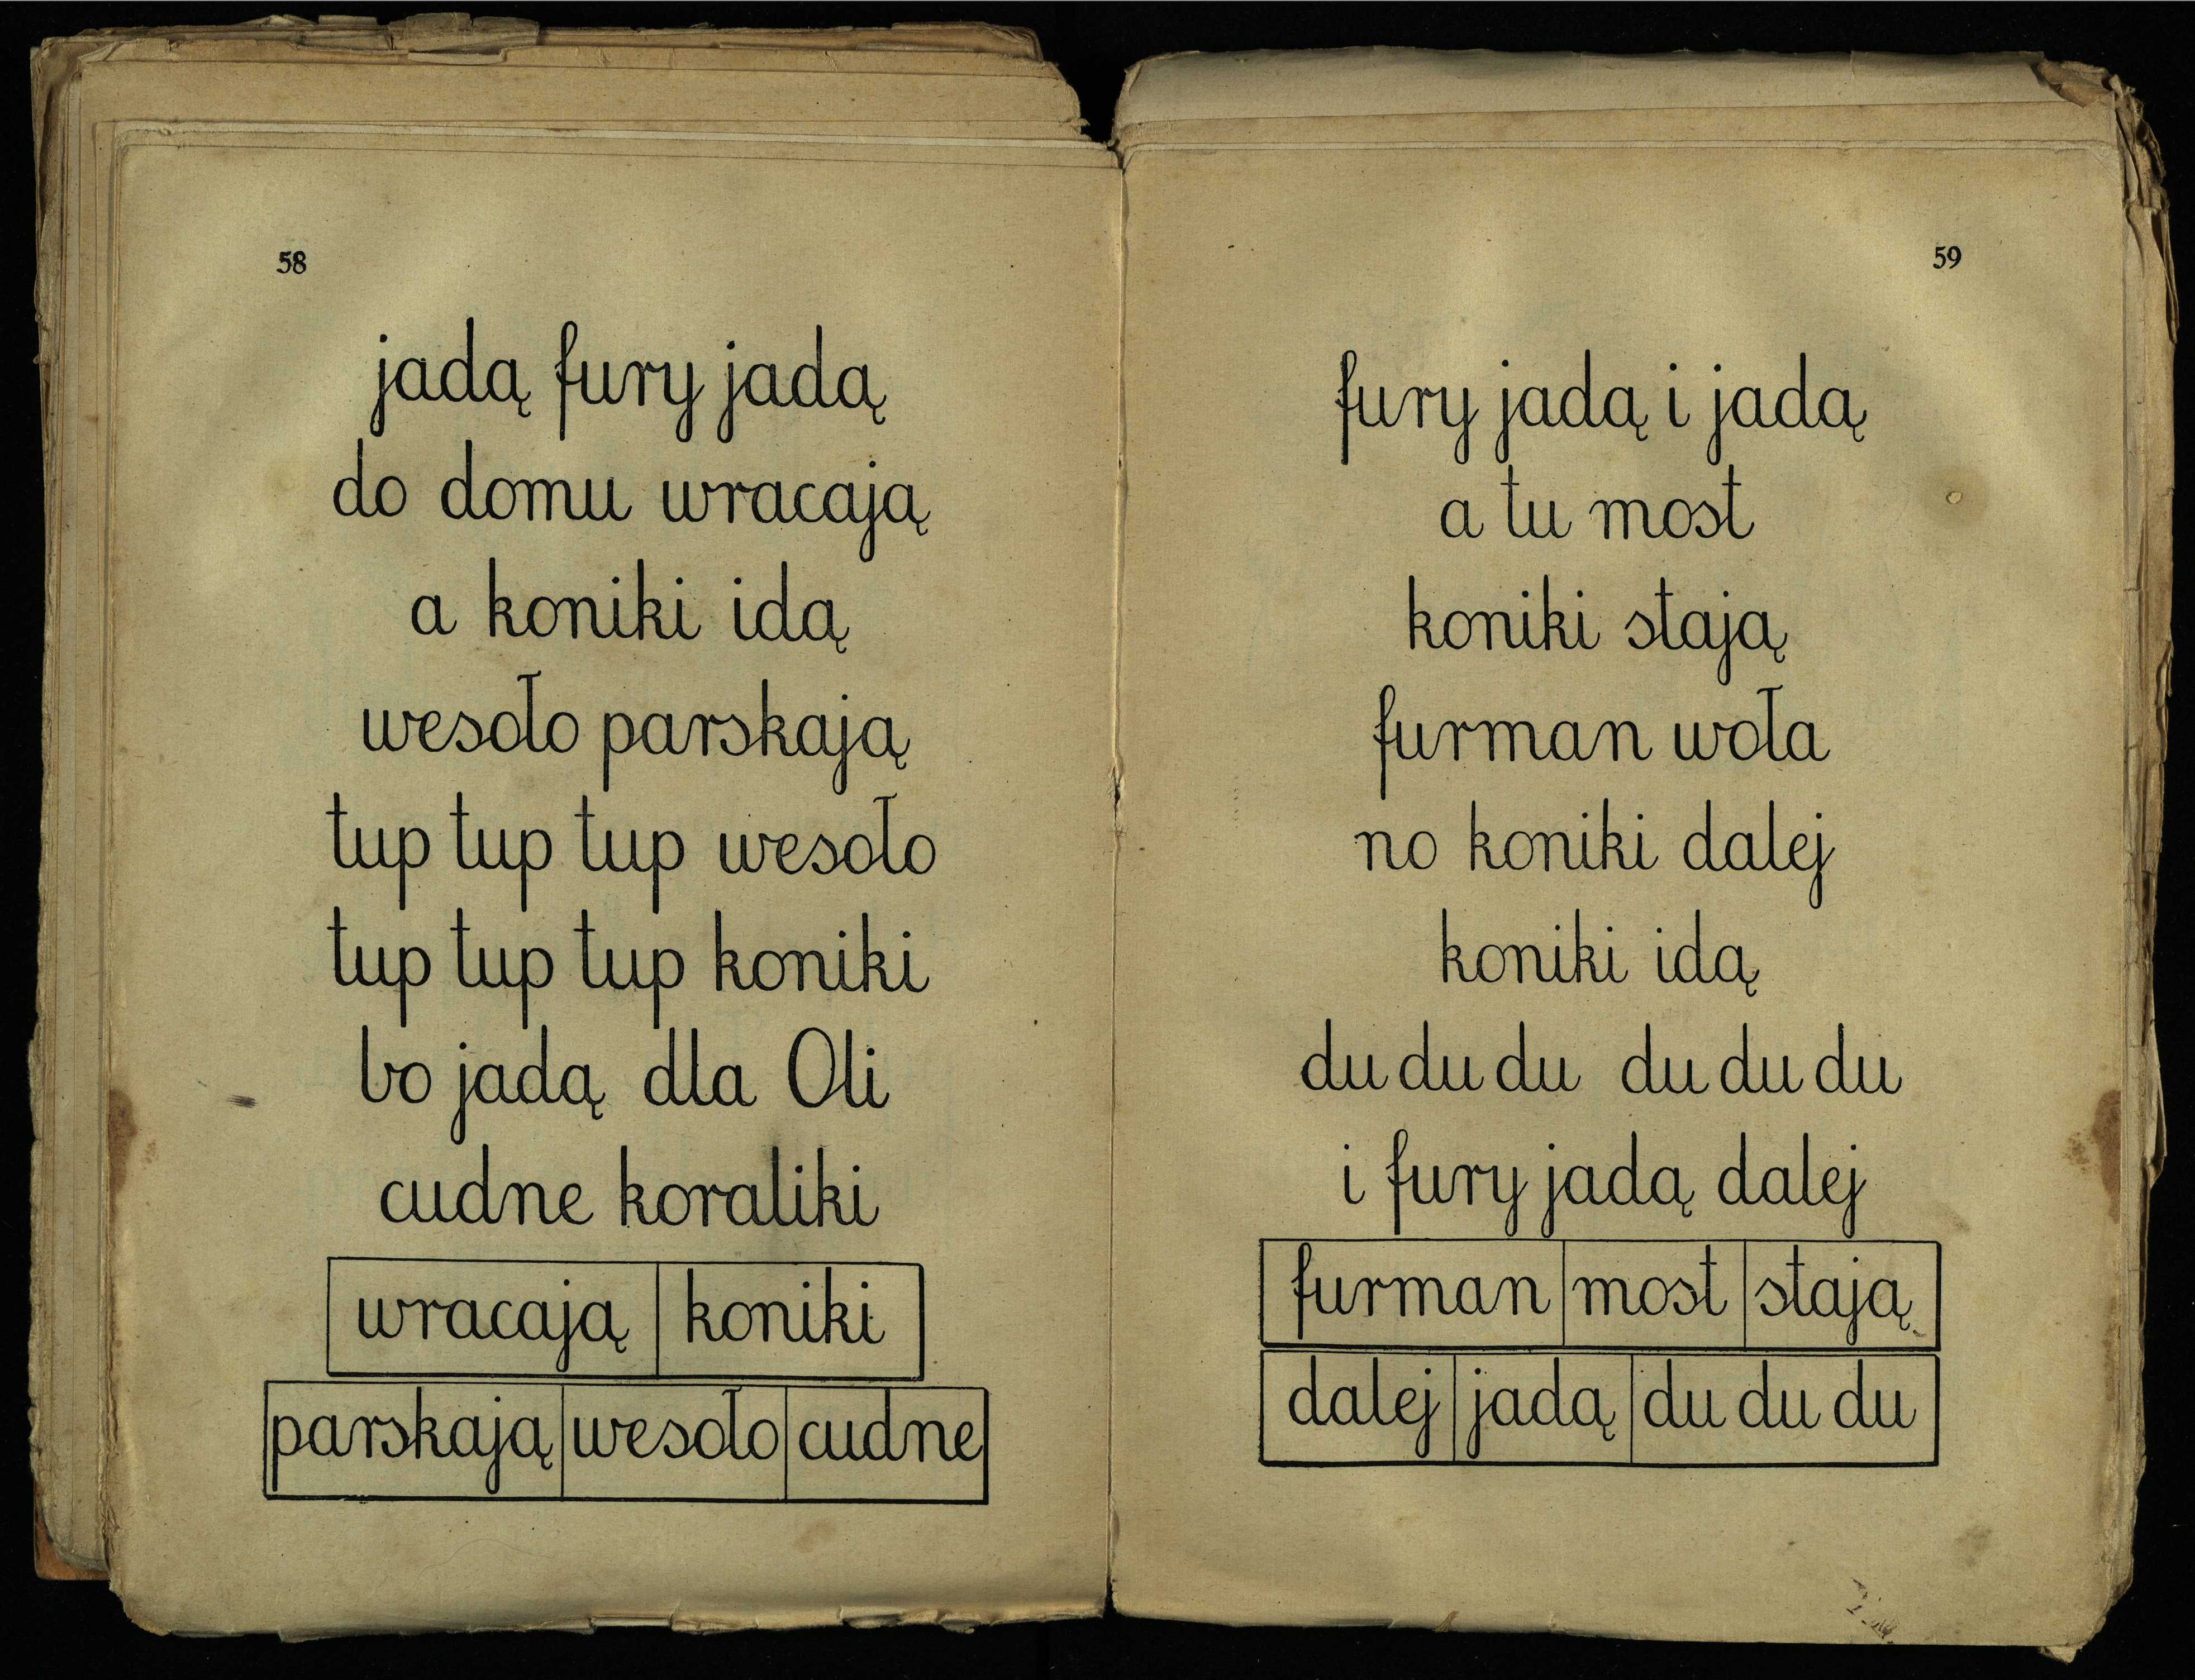 58
jadą fury jadą
do domu wracają
a koniki idą
wesoło parskają
tup tup tup wesoło
tup tup tup koniki
bo jadą dla Oli
cudne koraliki
wracają koniki
parskają wesoło cudne
59
fury jadą i jadą
a tu most
koniki stają
furman woła
no koniki dalej
koniki idą
du du du du du du
i fury jadą dalej
furman most stają
dalej jadą du du du